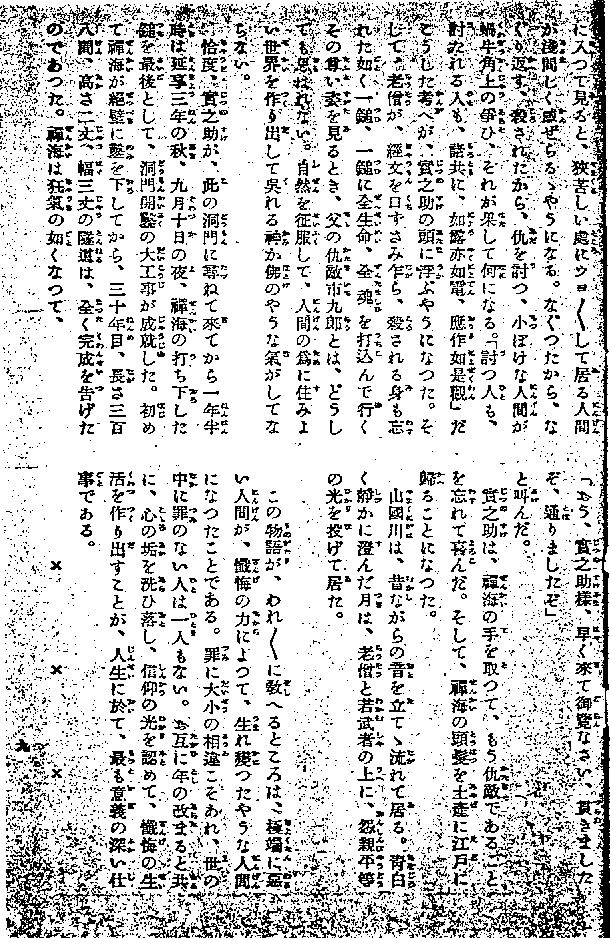 に入つて見ると、狹苦しい處にウヨ〳〵して居る人間
が淺間しく感ぜらるゝやうになる。なぐつたから、な
ぐり返す、殺されたから、仇を討つ、小ぽけな人間が
蝸牛角上の爭ひ、それが果して何になる。「討つ人も、
討たれる人も、諸共に、如露亦如電、應作如是觀」だ
こうした考へが、實之助の頭に浮ぶやうになつた。そ
して、老僧が、經文を口ずさみ乍ら、殺される身も忘
れた如く一鎚、一鎚に全生命、全魂を打込んで行く
その尊い姿を見るとき、父の仇敵市九郎とは、どうし
ても思はれない。自然を征服して、人間の爲に住みよ
い世界を作り出して呉れる神か佛のやうな氣がしてな
らない。
恰度、實之助が、此の洞門に尋ねて來てから一年半
時は延享三年の秋、九月十日の夜、禪海の打ち下した
鎚を最後として、洞門開鑿の大工事が成就した。初め
て禪海が絕壁に鑿を下してから、三十年目、長さ三百
八間、高さ二丈、幅三丈の隧道は、全く完成を告げた
のであつた。禪海は狂氣の如くなつて、
「おう、實之助樣、早く來て御覽なさい、貫きました
ぞ、通りましたぞ」
と叫んだ。
實之助は、禪海の手を取つて、もう仇敵であること
を忘れて喜んだ。そして、禪海の頭髮を土產に江戶に
歸ることになつた。
山國川は、昔ながらの音を立てゝ流れて居る。靑白
く靜かに澄んだ月は、老僧と若武者の上に、怨親平等
の光を投げて居た。
この物語が、われ〳〵に敎へるところは、極端に惡
い人間が、懺悔の力によつて、生れ變つたやうな人間
になつたことである。罪に大小の相違こそあれ、世の
中に罪のない人は一人もない。お互に年の改まると共
に、心の垢を洗ひ落し、信仰の光を認めて、懺悔の生
活を作り出すことが、人生に於て、最も意義の深い仕
事である。
× × ×
九